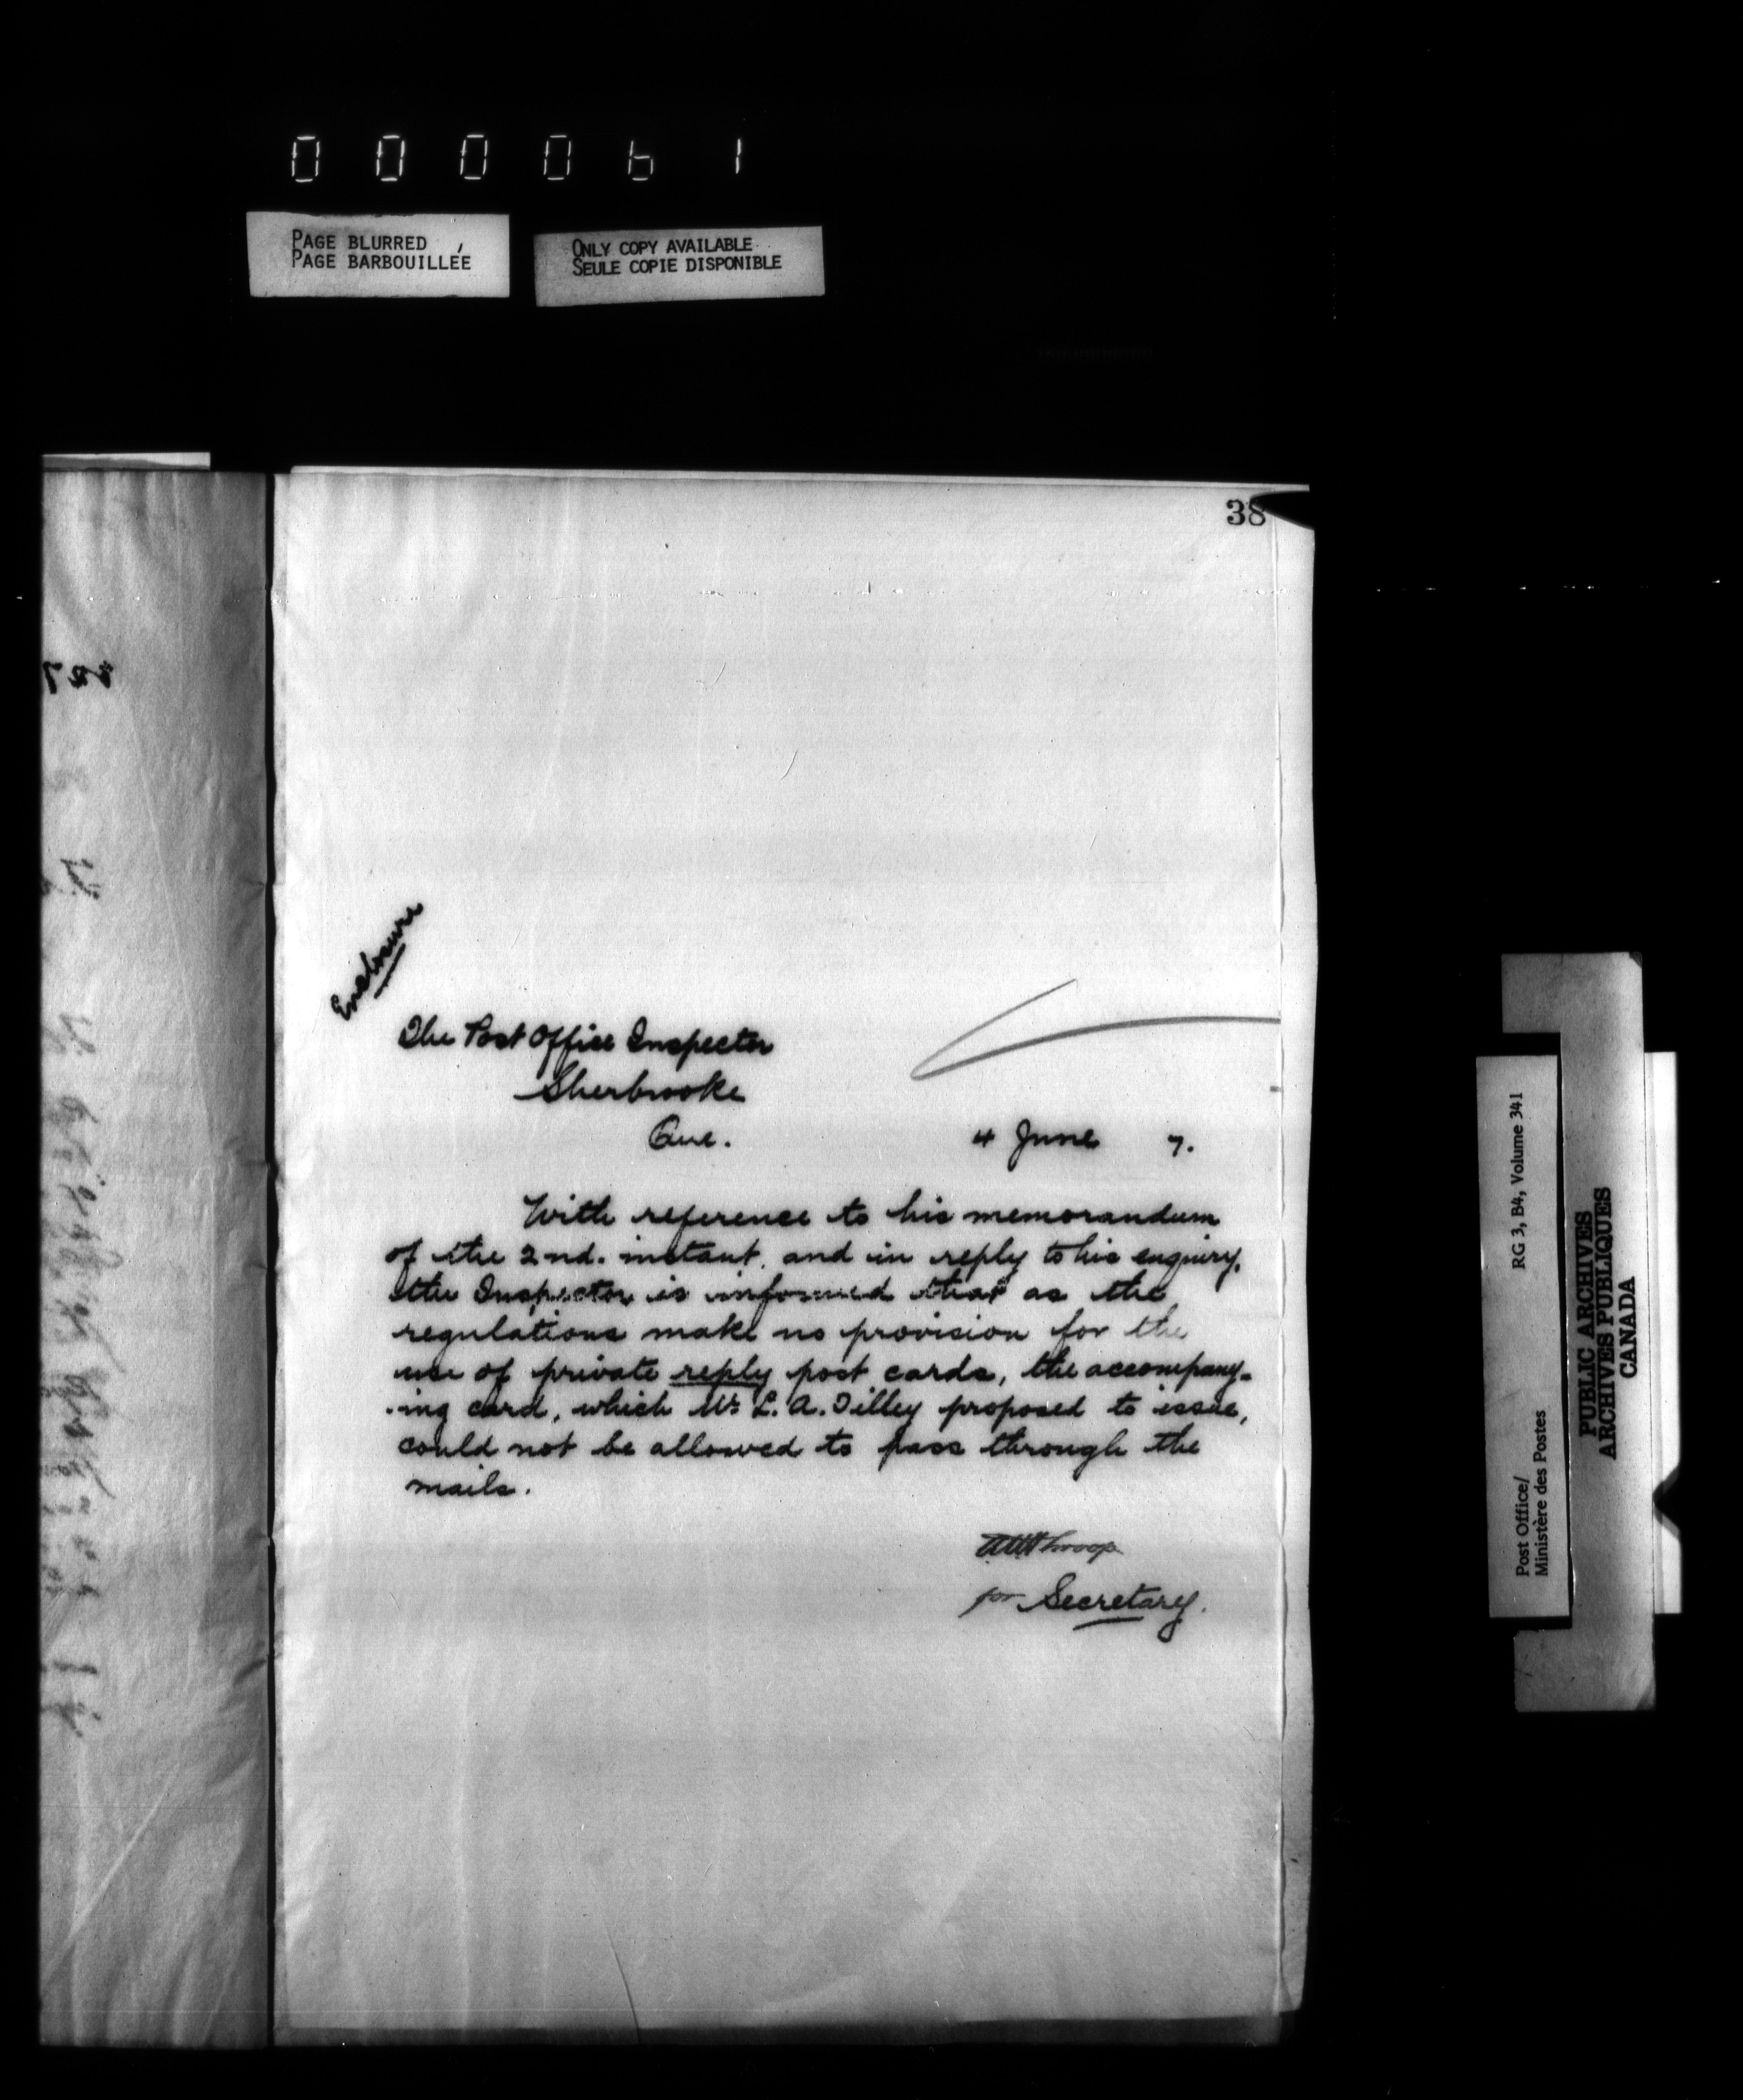 000061
PAGE BLURRED
PAGE BARBOUILLÉE
ONLY COPY AVAILABLE
SEULE COPIE DISPONIBLE
38
Enclosure
The Post Office Inspector
Sherbrooke
Que.
4 June 7.
With reference to his memorandum
of the 2nd. instant, and in reply to his enquiry,
the Inspector is informed that as the
regulations make no provision for the
use of private reply post cards, the accompany-
-ing card, which Mr. L. A. Tilley proposed to issue,
could not be allowed to pass through the
mails.
Throop
for Secretary.
RG 3, B4, Volume 341
Post Office/
Ministère des Postes
PUBLIC ARCHIVES
ARCHIVES PUBLIQUES
CANADA